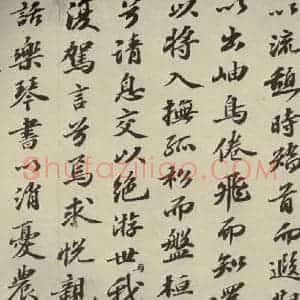 以流憩時矯首而遐
以出岫鳥倦飛而知
以將入撫孤松而盤桓
兮請息交以絕游世我
復駕言兮焉求悅親
話樂琴書以消憂農
Shufaziliao.com